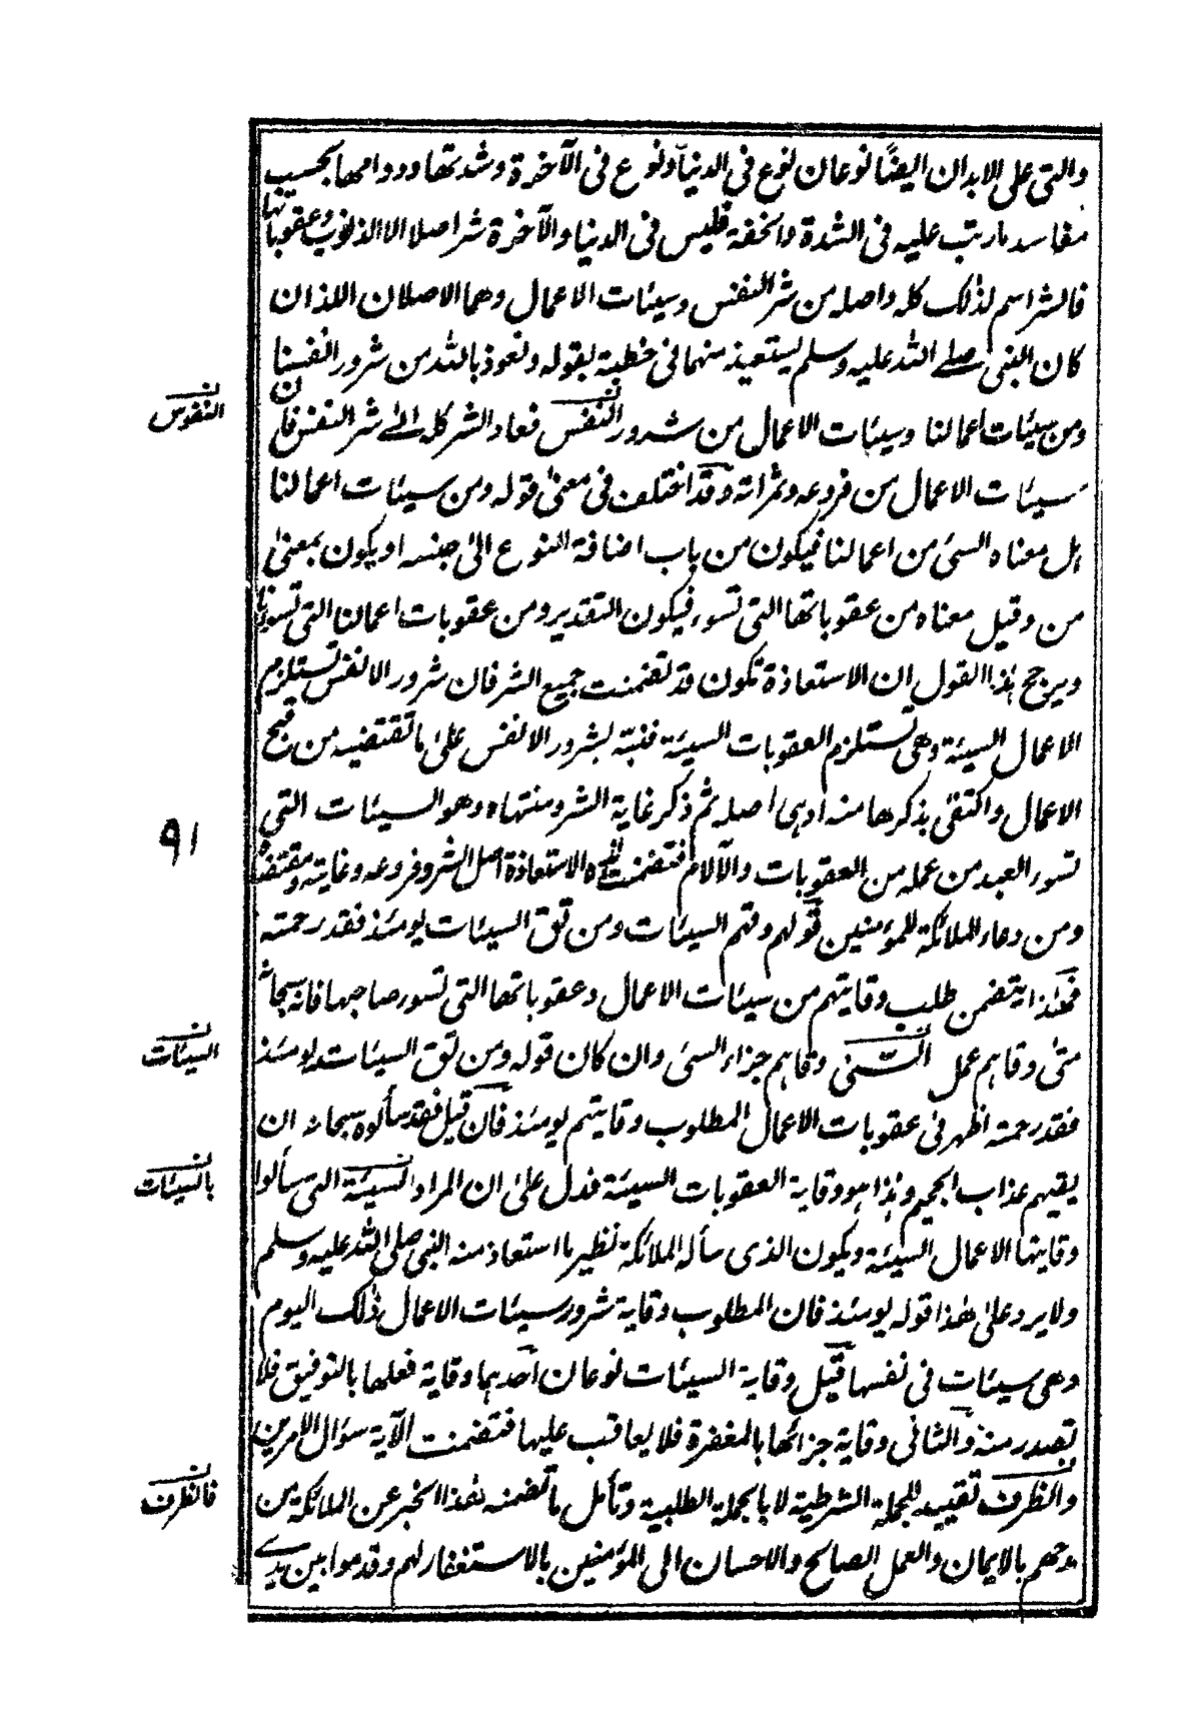 والتى على الابدان ايضًا نوعان نوع فى الدنيا ونوع فى الآخرة وشدتها ودوامها بحسب
مفاسد ما رتب عليه فى الشدة والخفة فليس فى الدنيا والآخرة شر اصلا الا الذنوب وعقوباتها
فالشر اسم لذلك كله واصله من شر النفس وسيئات الاعمال وهما الاصلان اللذان
كان النبى صلے اللّٰه عليه وسلم يستعيذ منهما فى خطبة بقوله ونعوذ باللّٰه من شرور انفسنا
النفوس
ومن سيئات أعمالنا وسيئات الاعمال من شرور النفس فعاد الشر كله الىٰ شر النفس فان
سيئات الاعمال من فروعه وثمراته وقد اختلف فى معنىٰ قوله ومن سيئات اعمالنا
هل معناه السئ من اعمالنا فيكون من باب اضافة النوع الىٰ جنسه او يكون بمعنىٰ
من وقيل معناه من عقوباتها التى تسوء فيكون التقدير ومن عقوبات اعمالنا التى تسوءنا
ويرجح هٰذا القول ان الاستعاذة تكون قد تضمنت جميع الشر فان شرور الانفس تستلزم
الاعمال السيئة وهى تستلزم العقوبات السيئة فنبّه بشرور الانفس علىٰ ما تقتضيه من قبح
الاعمال واكتفىٰ بذكرها منه اذ هى اصله ثم ذكر غاية الشر ومنتهاه وهو السيئات التى
٩١
تسوء العبد من عمله من العقوبات والآلام فتضمنت هٰذه الاستعاذة اصل الشر وفروعه وغايته ومقتضاه
ومن دعاء الملائكة للمؤمنين قولهم وقهم السيئات ومن تق السيئات يومئذ فقد رحمته
فهٰذا يتضمن طلب وقايتهم من سيئات الاعمال وعقوباتها التى تسوء صاحبها فانه سبحانه
السيئات
متىٰ وقاهم عمل السّئى وقاهم جزاء السئ وان كان قوله ومن تق السيئات يومئذ
فقد رحمته اظهر فى عقوبات الاعمال المطلوب وقايتهم يومئذ فان قيل فقد سألوه سبحانه ان
بالسيئات
يقيهم عذاب الجحيم وهٰذا هو وقاية العقوبات السيئة فدل علىٰ ان المراد السيئة التى سألوا
وقايتها الاعمال السيئة ويكون الذى سأله الملائكة نظير ما استعاذ منه النبى صلى اللّٰه عليه وسلم
ولا يرد علىٰ هٰذا قوله يومئذ فان المطلوب وقاية شرور سيئات الاعمال ذٰلك اليوم
وهى سيئات فى نفسها قيل وقاية السيئات نوعان احدهما وقاية فعلها بالتوفيق فلا
تصدر منه والثانى وقاية جزائها بالمغفرة فلا يعاقب عليها فتضمنت الآية سؤال الامرين
فالظرف
والظرف تقييد للجملة الشرطية لا بالجملة الطلبية وتأمل ما تضمنه هٰذا الخبر عن الملائكة من
مدحهم بالايمان والعمل الصالح والاحسان الى المؤمنين بالاستغفار لهم وقدموا بين يدے